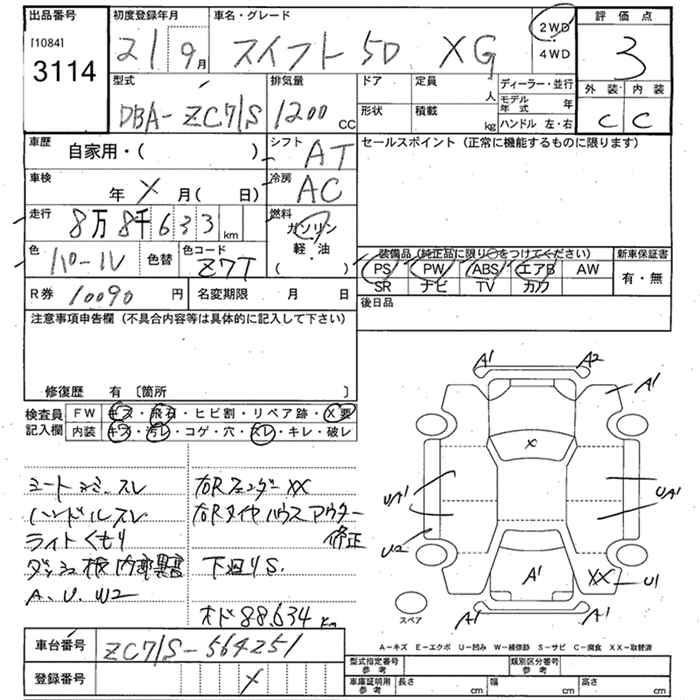 出品番号 初度登録年月 車名・グレード 2WD 評価点
[1084] 3114 21 9月 スイフト 5D XG 4WD 3
型式 排気量 ドア 定員 人 ディーラー・並行 外装 内装
DBA-ZC71S 1200 CC 形状 積載 kg モデル年式 年 C C
ハンドル 左・右
車歴 自家用・( ) シフト AT セールスポイント (正常に機能するものに限ります)
車検 年 X 月( 日) 冷房 AC
走行 8万8千633 km 燃料 ガソリン・軽・油 ( )
色 パール 色替 色コード Z7T
装備品 (純正品に限り○をつけてください) 新車保証書
PS PW ABS エアB AW 有・無
SR ナビ TV カワ
R券 10090 円 名変期限 月 日 後日品
注意事項申告欄 (不具合内容等は具体的に記入して下さい)
修復歴 有 〔箇所 〕
検査員記入欄 FW キズ・飛石・ヒビ割・リペア跡・X要
内装 キズ・汚レ・コゲ・穴・スレ・キレ・破レ
シートシミ、スレ 右Rフェンダー XX
ハンドルスレ 右Rタイヤハウスアウター
ライトくもり 修正
ダッシュ横内部異音 下廻りS.
A、U、W2
オド88,634 km
A1 A2
A1
X
UA1 UA1
U2
A1 XX U1
A1 A1
スペア
A-キズ E-エクボ U-凹み W-補修跡 S-サビ C-腐食 XX-取替済
車台番号 ZC71S-564251
登録番号 X
型式指定番号 参考 類別区分番号 参考
車庫証明用 参考 長さ cm 幅 cm 高さ cm